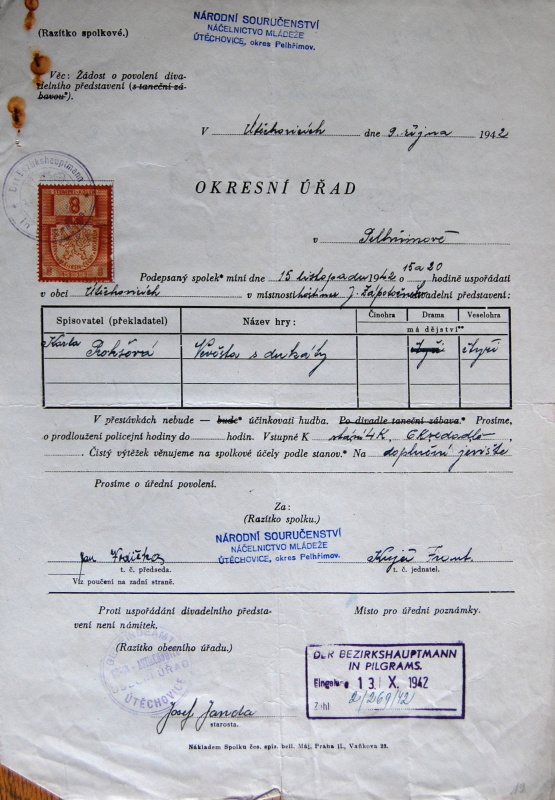 (Razítko spolkové.)
NÁRODNÍ SOURUČENSTVÍ
NÁČELNICTVO MLÁDEŽE
ÚTĚCHOVICE, okres Pelhřimov.
Věc: Žádost o povolení diva-
delního představení (s taneční zá-
bavou*).
V Útěchovicích dne 9. října 1942
Der Bezirkshauptmann
8
OKRESNÍ ÚŘAD
v Pelhřimově
Podepsaný spolek* míní dne 15 listopadu 1942 o 15 a 20 hodině uspořádati
v obci Útěchovicích v místnosti hostince J. divadelní představení:
Spisovatel (překladatel) Název hry: Činohra Drama Veselohra
má dějství**
Karla Prokšová Nevěsta s dukáty čtyři čtyři
V přestávkách nebude — bude* účinkovati hudba. Po divadle taneční zábava.* Prosíme,
o prodloužení policejní hodiny do hodin. Vstupné K stání 4 K, 6 K sedadlo
Čistý výtěžek věnujeme na spolkové účely podle stanov.* Na doplnění jeviště
Prosíme o úřední povolení.
Za:
(Razítko spolku:)
NÁRODNÍ SOURUČENSTVÍ
NÁČELNICTVO MLÁDEŽE
ÚTĚCHOVICE, okres Pelhřimov.
Jan
t. č. předseda. t. č. jednatel.
Viz poučení na zadní straně.
Proti uspořádání divadelního předsta-
vení není námitek.
Místo pro úřední poznámky.
(Razítko obecního úřadu.)
GEMEINDEAMT
OBECNÍ ÚŘAD
ÚTĚCHOVICE
DER BEZIRKSHAUPTMANN
IN PILGRAMS.
13. X. 1942
Zahl 2/269/42
Josef Janda
starosta.
Nákladem Spolku čes. spis. bell. Máj, Praha II., Vaňkova 22.
19